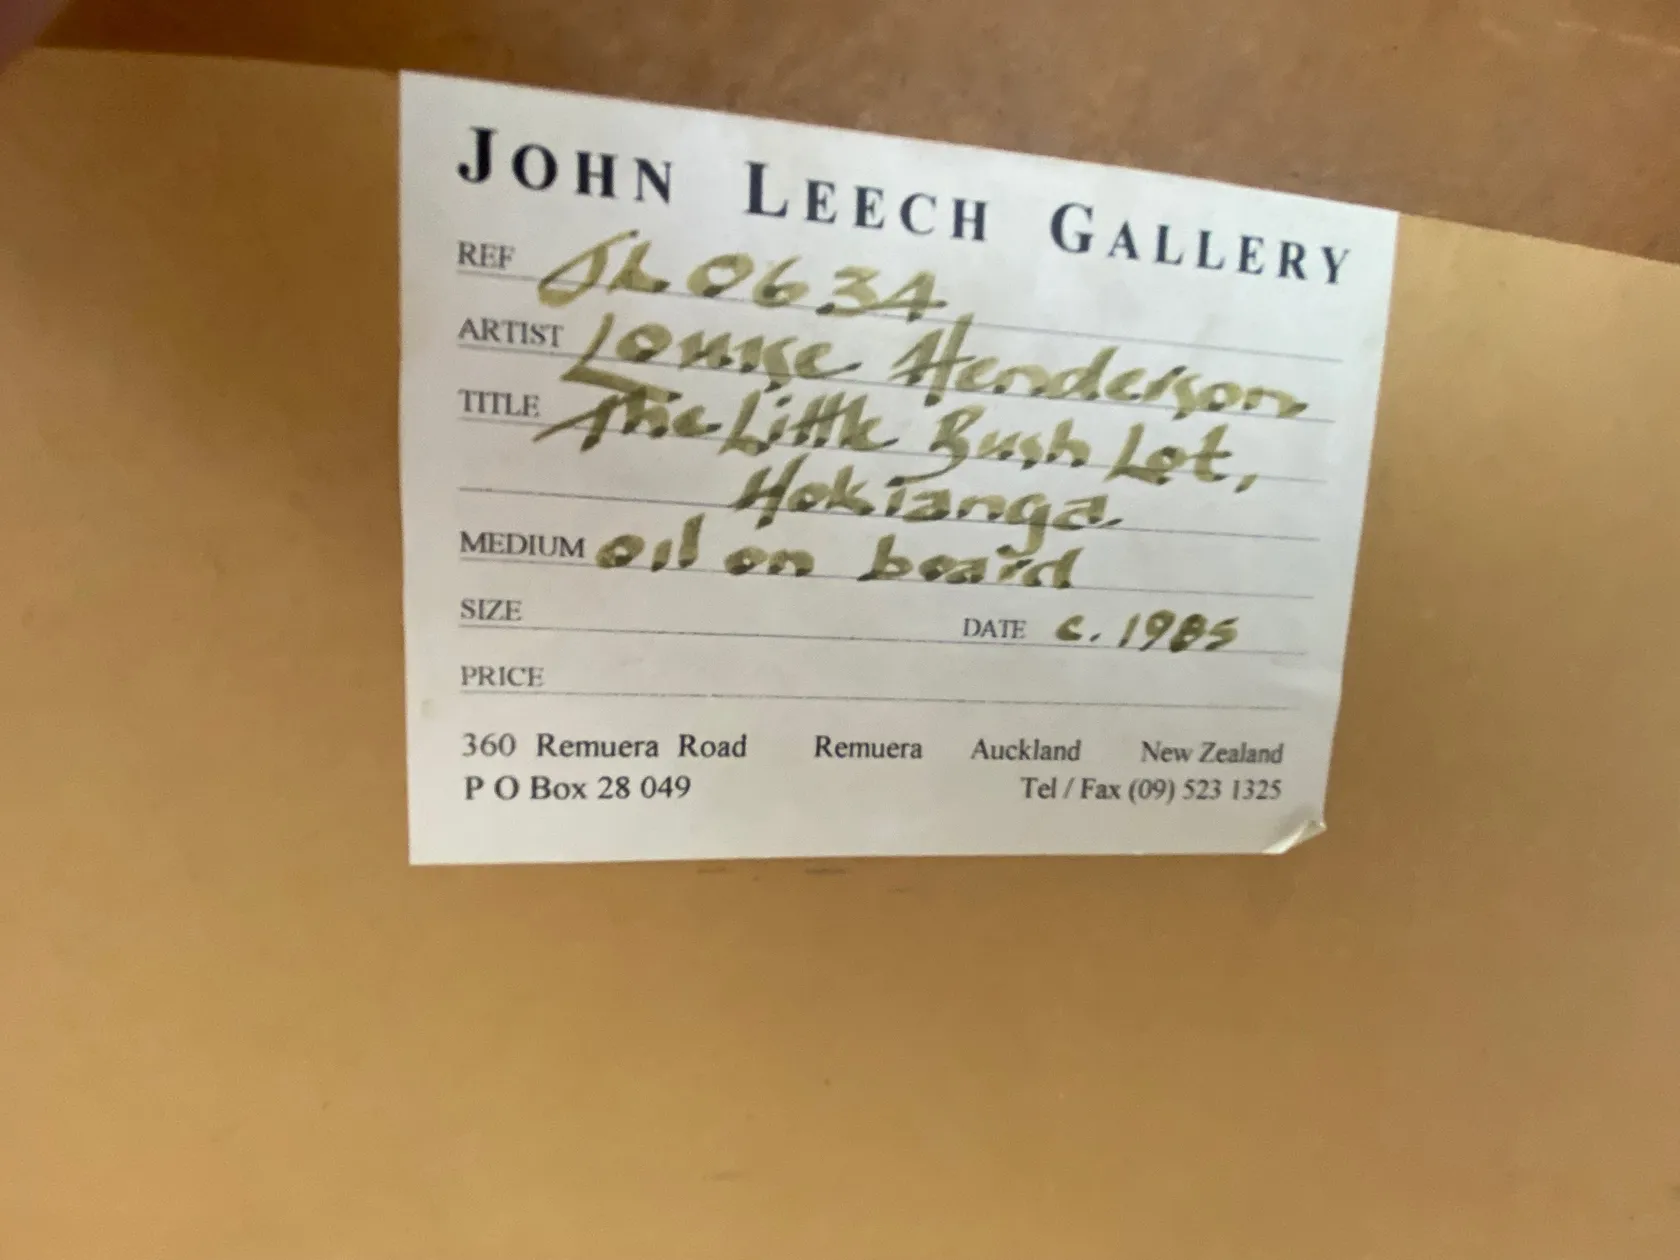 JOHN LEECH GALLERY
REF JL 0634
ARTIST Louise Henderson
TITLE The Little Bush Lot,
Hokianga
MEDIUM oil on board
SIZE DATE c. 1985
PRICE
360 Remuera Road Remuera Auckland New Zealand
P O Box 28 049 Tel / Fax (09) 523 1325